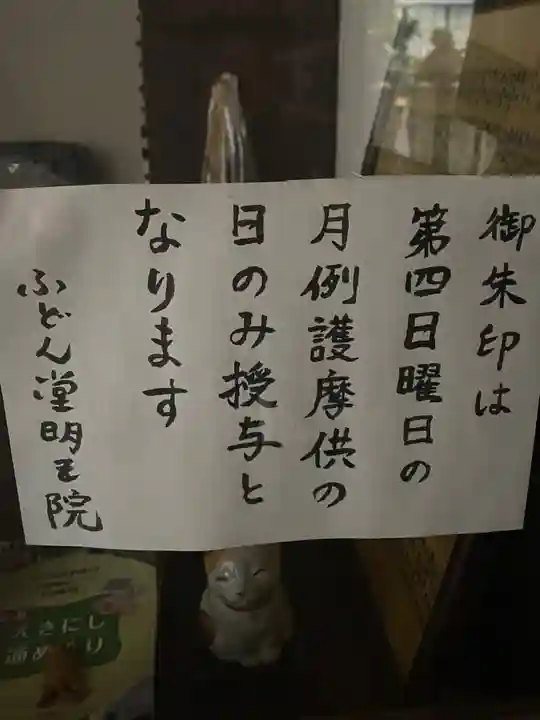 御朱印は
第四日曜日の
月例護摩供の
日のみ授与と
なります
ふどん堂明王院